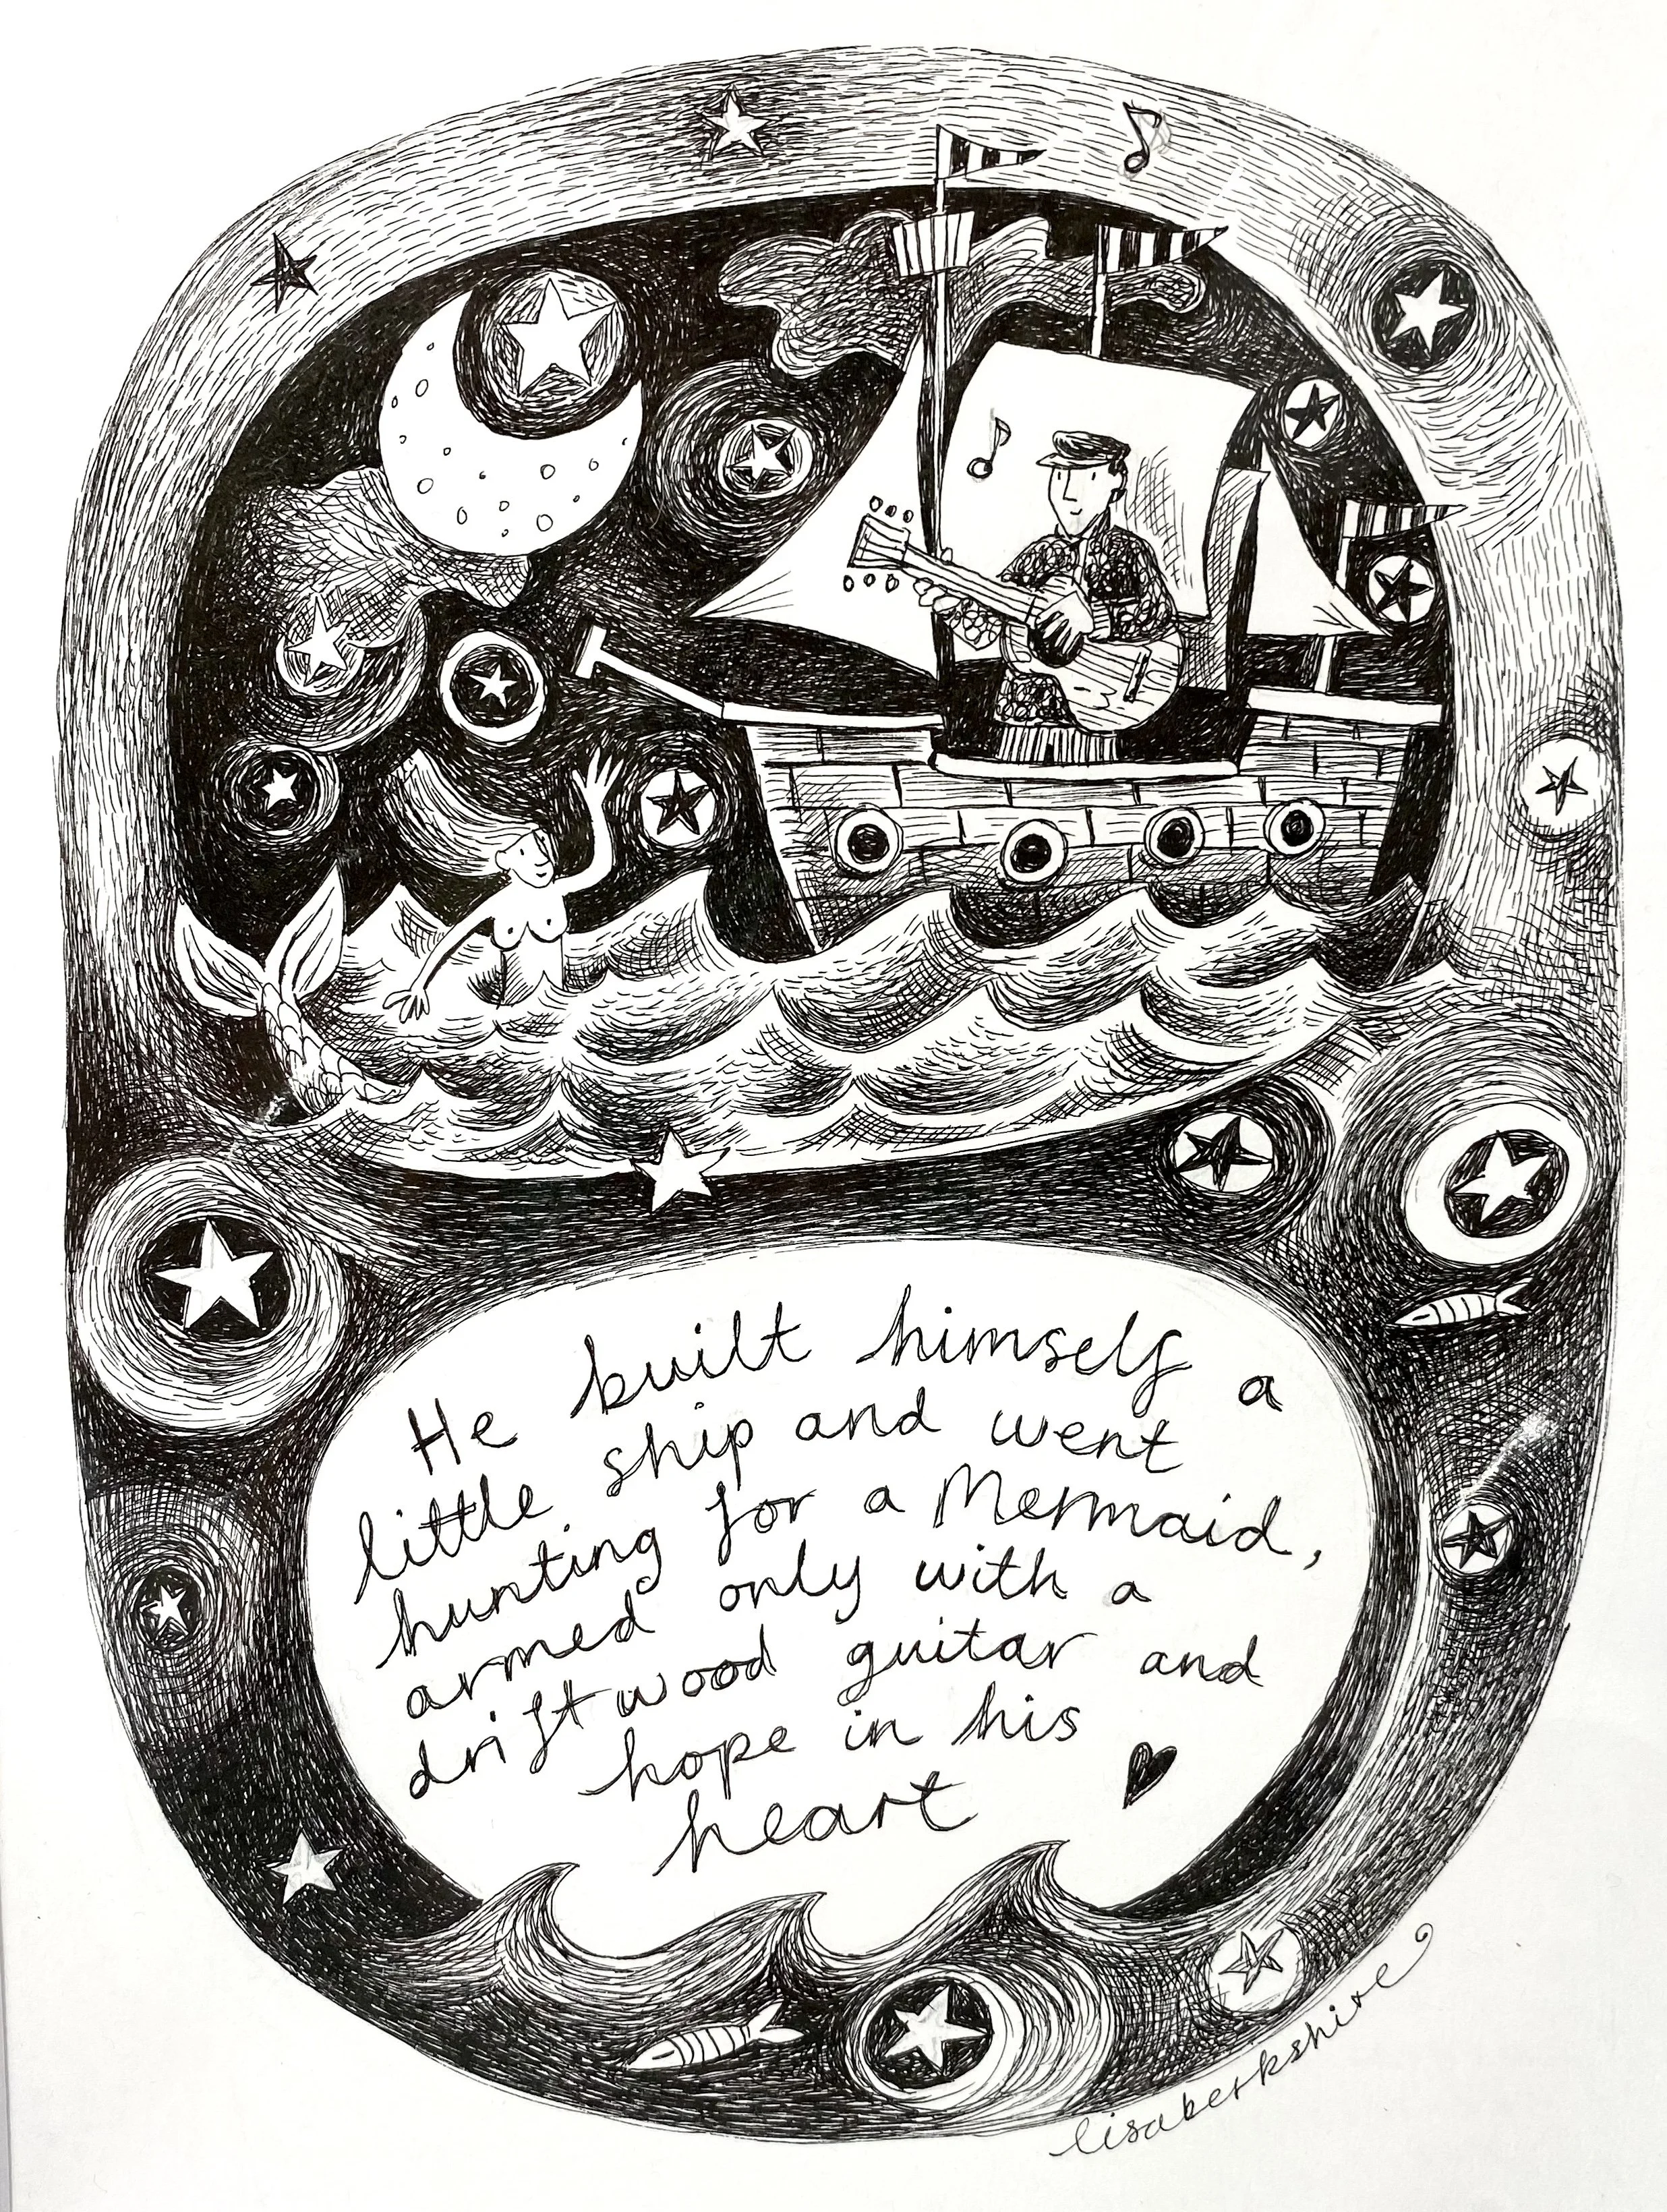 He built himself a
little ship and went
hunting for a Mermaid,
armed only with a
driftwood guitar and
hope in his
heart
lisaberkshire